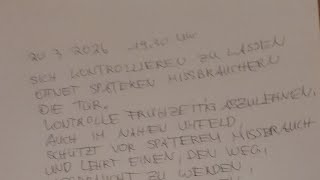 20.3.2026 19.40 Uhr
SICH KONTROLLIEREN ZU LASSEN
ÖFNET SPÄTEREN MISSBRÄUCHERN
DIE TÜR.
KONTROLLE FRÜHZEITIG ABZULEHNEN,
AUCH IM NAHEN UMFELD,
SCHÜTZT VOR SPÄTEREM MISSBRAUCH
UND LEHRT EINEN, DEN WEG,
ZU WERDEN,